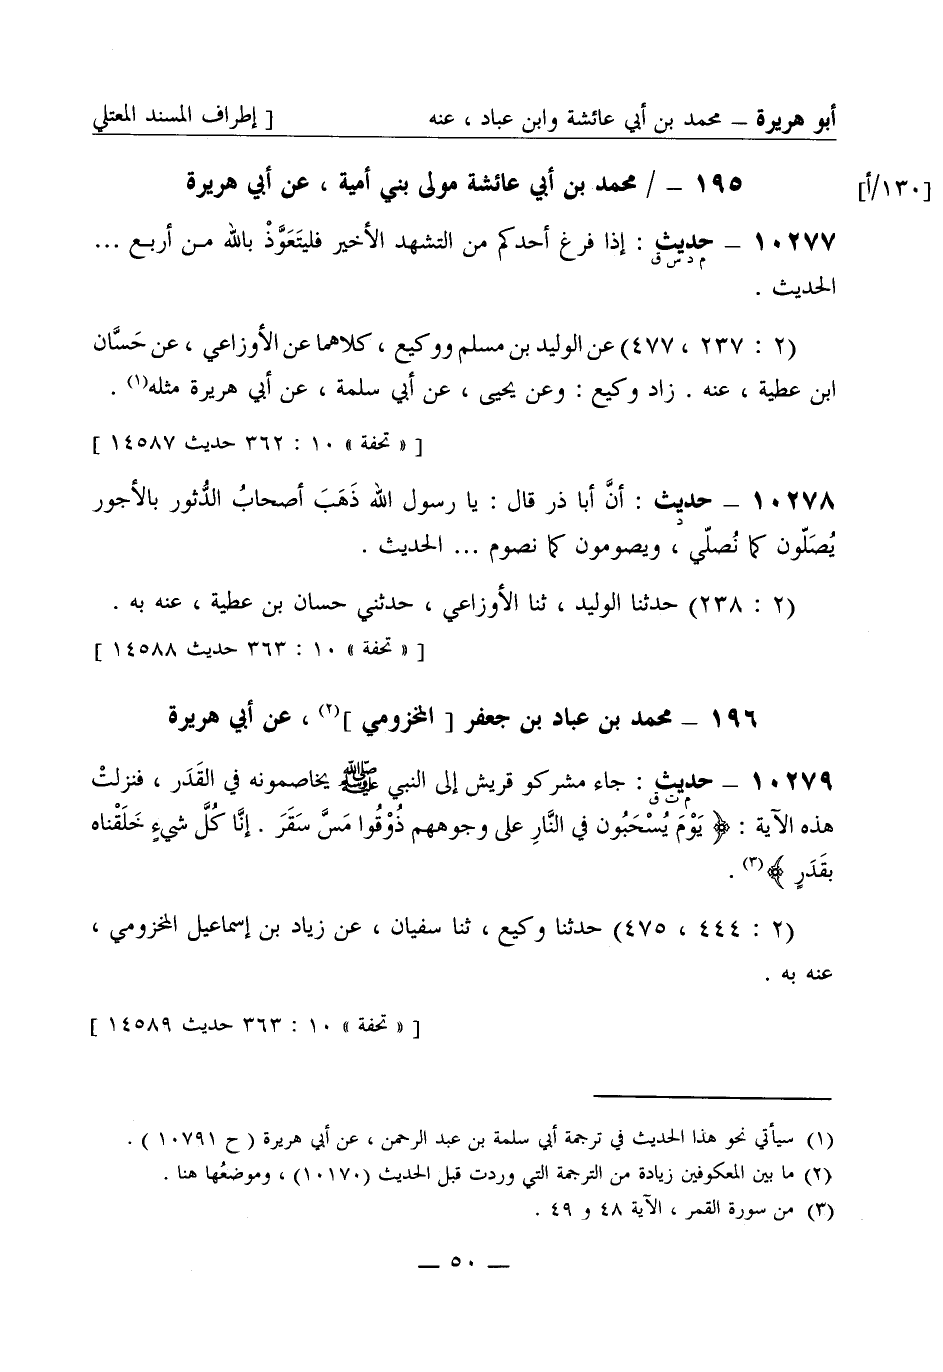 أبو هريرة ــ محمد بن أبي عائشة وابن عباد ، عنه [ إطراف المسند المعتلي
[١٣٠/أ] ١٩٥ ــ / محمد بن أبي عائشة مولى بني أمية ، عن أبي هريرة
١٠٢٧٧ ــ حديث : إذا فرغ أحدكم من التشهد الأخير فليتَعَوَّذْ بالله من أربع ...
م د س ق
الحديث .
(٢ : ٢٣٧ ، ٤٧٧) عن الوليد بن مسلم ووكيع ، كلاهما عن الأوزاعي ، عن حَسَّان
ابن عطية ، عنه . زاد وكيع : وعن يحيى ، عن أبي سلمة ، عن أبي هريرة مثله(١) .
[ « تحفة » ١٠ : ٣٦٢ حديث ١٤٥٨٧ ]
١٠٢٧٨ ــ حديث : أنَّ أبا ذر قال : يا رسول الله ذَهَبَ أصحابُ الدُّثور بالأجور
د
يُصَلّون كما نُصلّي ، ويصومون كما نصوم ... الحديث .
(٢ : ٢٣٨) حدثنا الوليد ، ثنا الأوزاعي ، حدثني حسان بن عطية ، عنه به .
[ « تحفة » ١٠ : ٣٦٣ حديث ١٤٥٨٨ ]
١٩٦ ــ محمد بن عباد بن جعفر [ المخزومي ](٢) ، عن أبي هريرة
١٠٢٧٩ ــ حديث : جاء مشركو قريش إلى النبي ﷺ يخاصمونه في القَدَر ، فنزلتْ
م ت ق
هذه الآية : ﴿ يَوْمَ يُسْحَبُون في النَّارِ على وجوههم ذُوْقُوا مَسَّ سَقَرَ . إنَّا كُلَّ شيءٍ خَلَقْناه
بقَدَرٍ ﴾(٣) .
(٢ : ٤٤٤ ، ٤٧٥) حدثنا وكيع ، ثنا سفيان ، عن زياد بن إسماعيل المخزومي ،
عنه به .
[ « تحفة » ١٠ : ٣٦٣ حديث ١٤٥٨٩ ]
(١) سيأتي نحو هذا الحديث في ترجمة أبي سلمة بن عبد الرحمن ، عن أبي هريرة ( ح ١٠٧٩١ ) .
(٢) ما بين المعكوفين زيادة من الترجمة التي وردت قبل الحديث (١٠١٧٠) ، وموضعُها هنا .
(٣) من سورة القمر ، الآية ٤٨ و ٤٩ .
ــ ٥٠ ــ